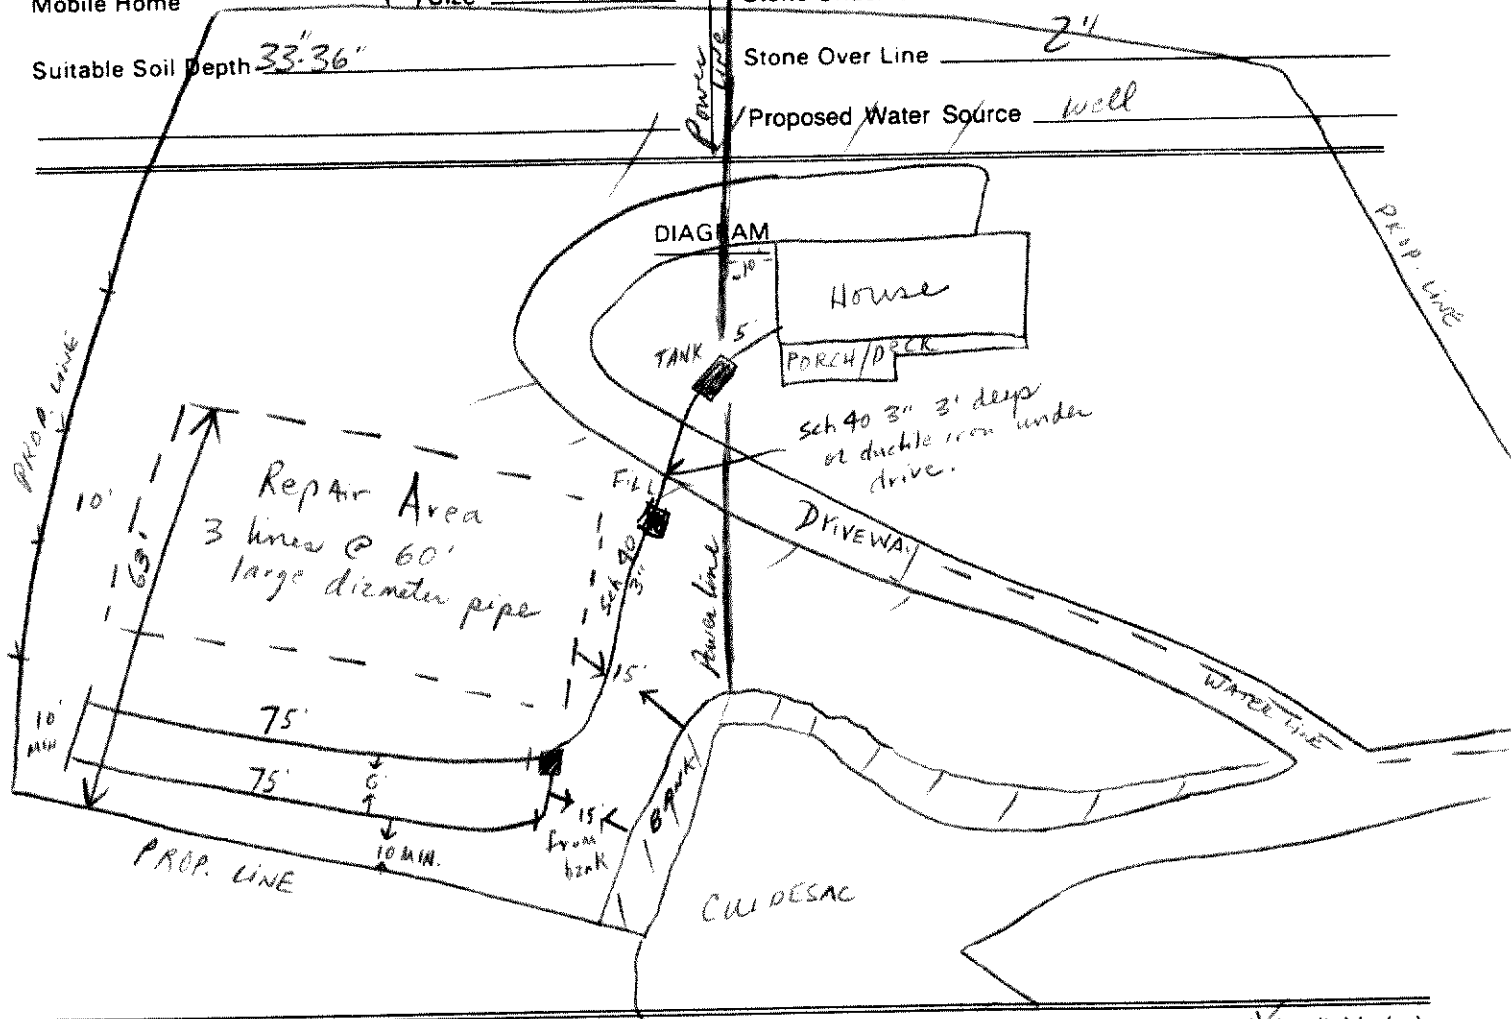 Mobile Home
Suitable Soil Depth 33"-36"
Stone Over Line 2"
Proposed Water Source well
Power Line
DIAGRAM
10'
House
5'
TANK
PORCH/DECK
PROP. LINE
PROP. LINE
sch 40 3" 3' deep
or ductile iron under
drive.
FILL
Repair Area
3 lines @ 60'
large diameter pipe
10'
63'
sch 40
3"
Power line
DRIVEWAY
15'
WATER LINE
10'
MIN
75'
75'
6'
15'
from
bank
BANK
10 MIN.
PROP. LINE
CULDESAC